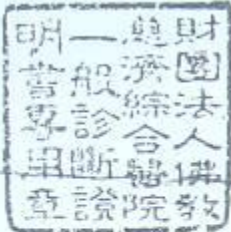 財團法人佛教
慈濟綜合醫院
一般診斷證
明書專用章